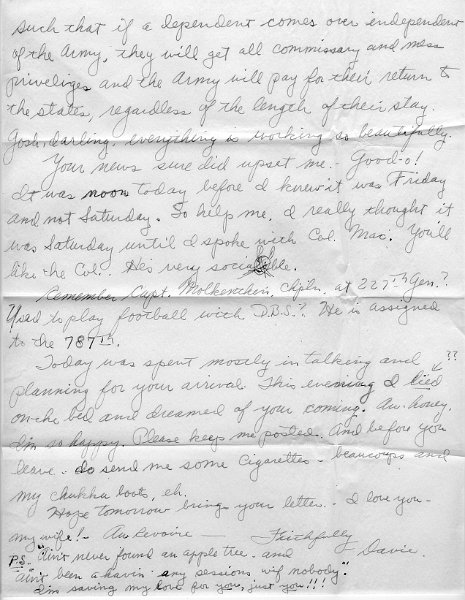 such that if a dependent comes over independent
of the Army, they will get all commissary and mess
priveliges and the Army will pay for their return to
the states, regardless of the length of their stay.
Gosh, darling, everything is working so beautifully.
Your news sure did upset me. - Good-o!
It was noon today before I knew it was Friday
and not Saturday. So help me, I really thought it
was Saturday until I spoke with Col. Mac. You'll
like the Col. He's very sociable.
Remember Capt. Molkenthin, Chpln. at 227th Gen.?
Used to play football with D.B.S.? He is assigned
to the 787th.
Today was spent mostly in talking and
??
planning for your arrival. This evening I lied
on the bed and dreamed of your coming. Aw honey,
I'm so happy. Please keep me posted. And before you
leave - do send me some cigarettes - beaucoups and
my chukka boots, eh.
Hope tomorrow brings your letter. - I love you -
my wife! - Au Revoire - Faithfully
Davie.
P.S. - "Ain't never found an apple tree - and
"Ain't been a havin' any sessions wif nobody."
I'm saving my love for you, just you!!!